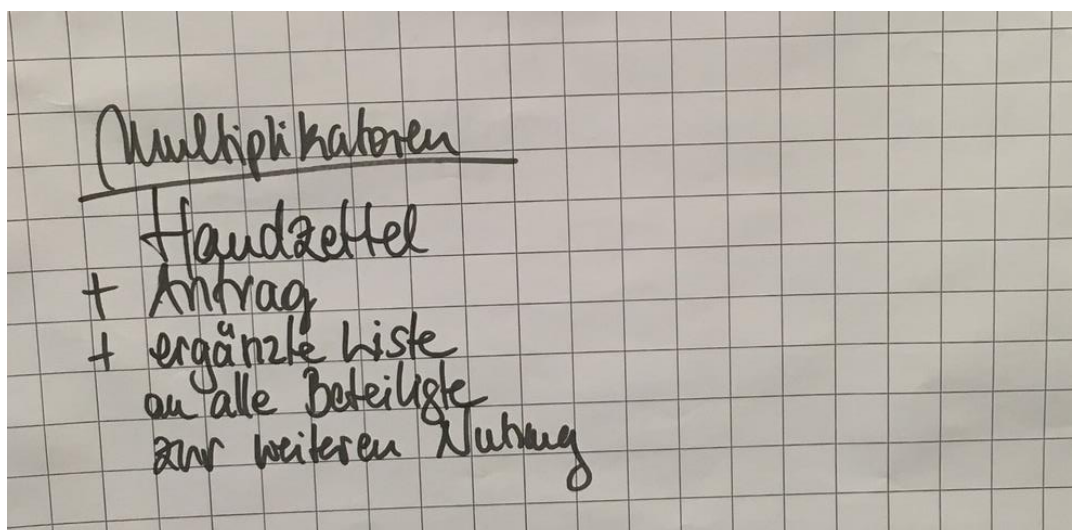 Multiplikatoren
Handzettel
+ Antrag
+ ergänzte Liste
an alle Beteiligte
zur weiteren Nutzung